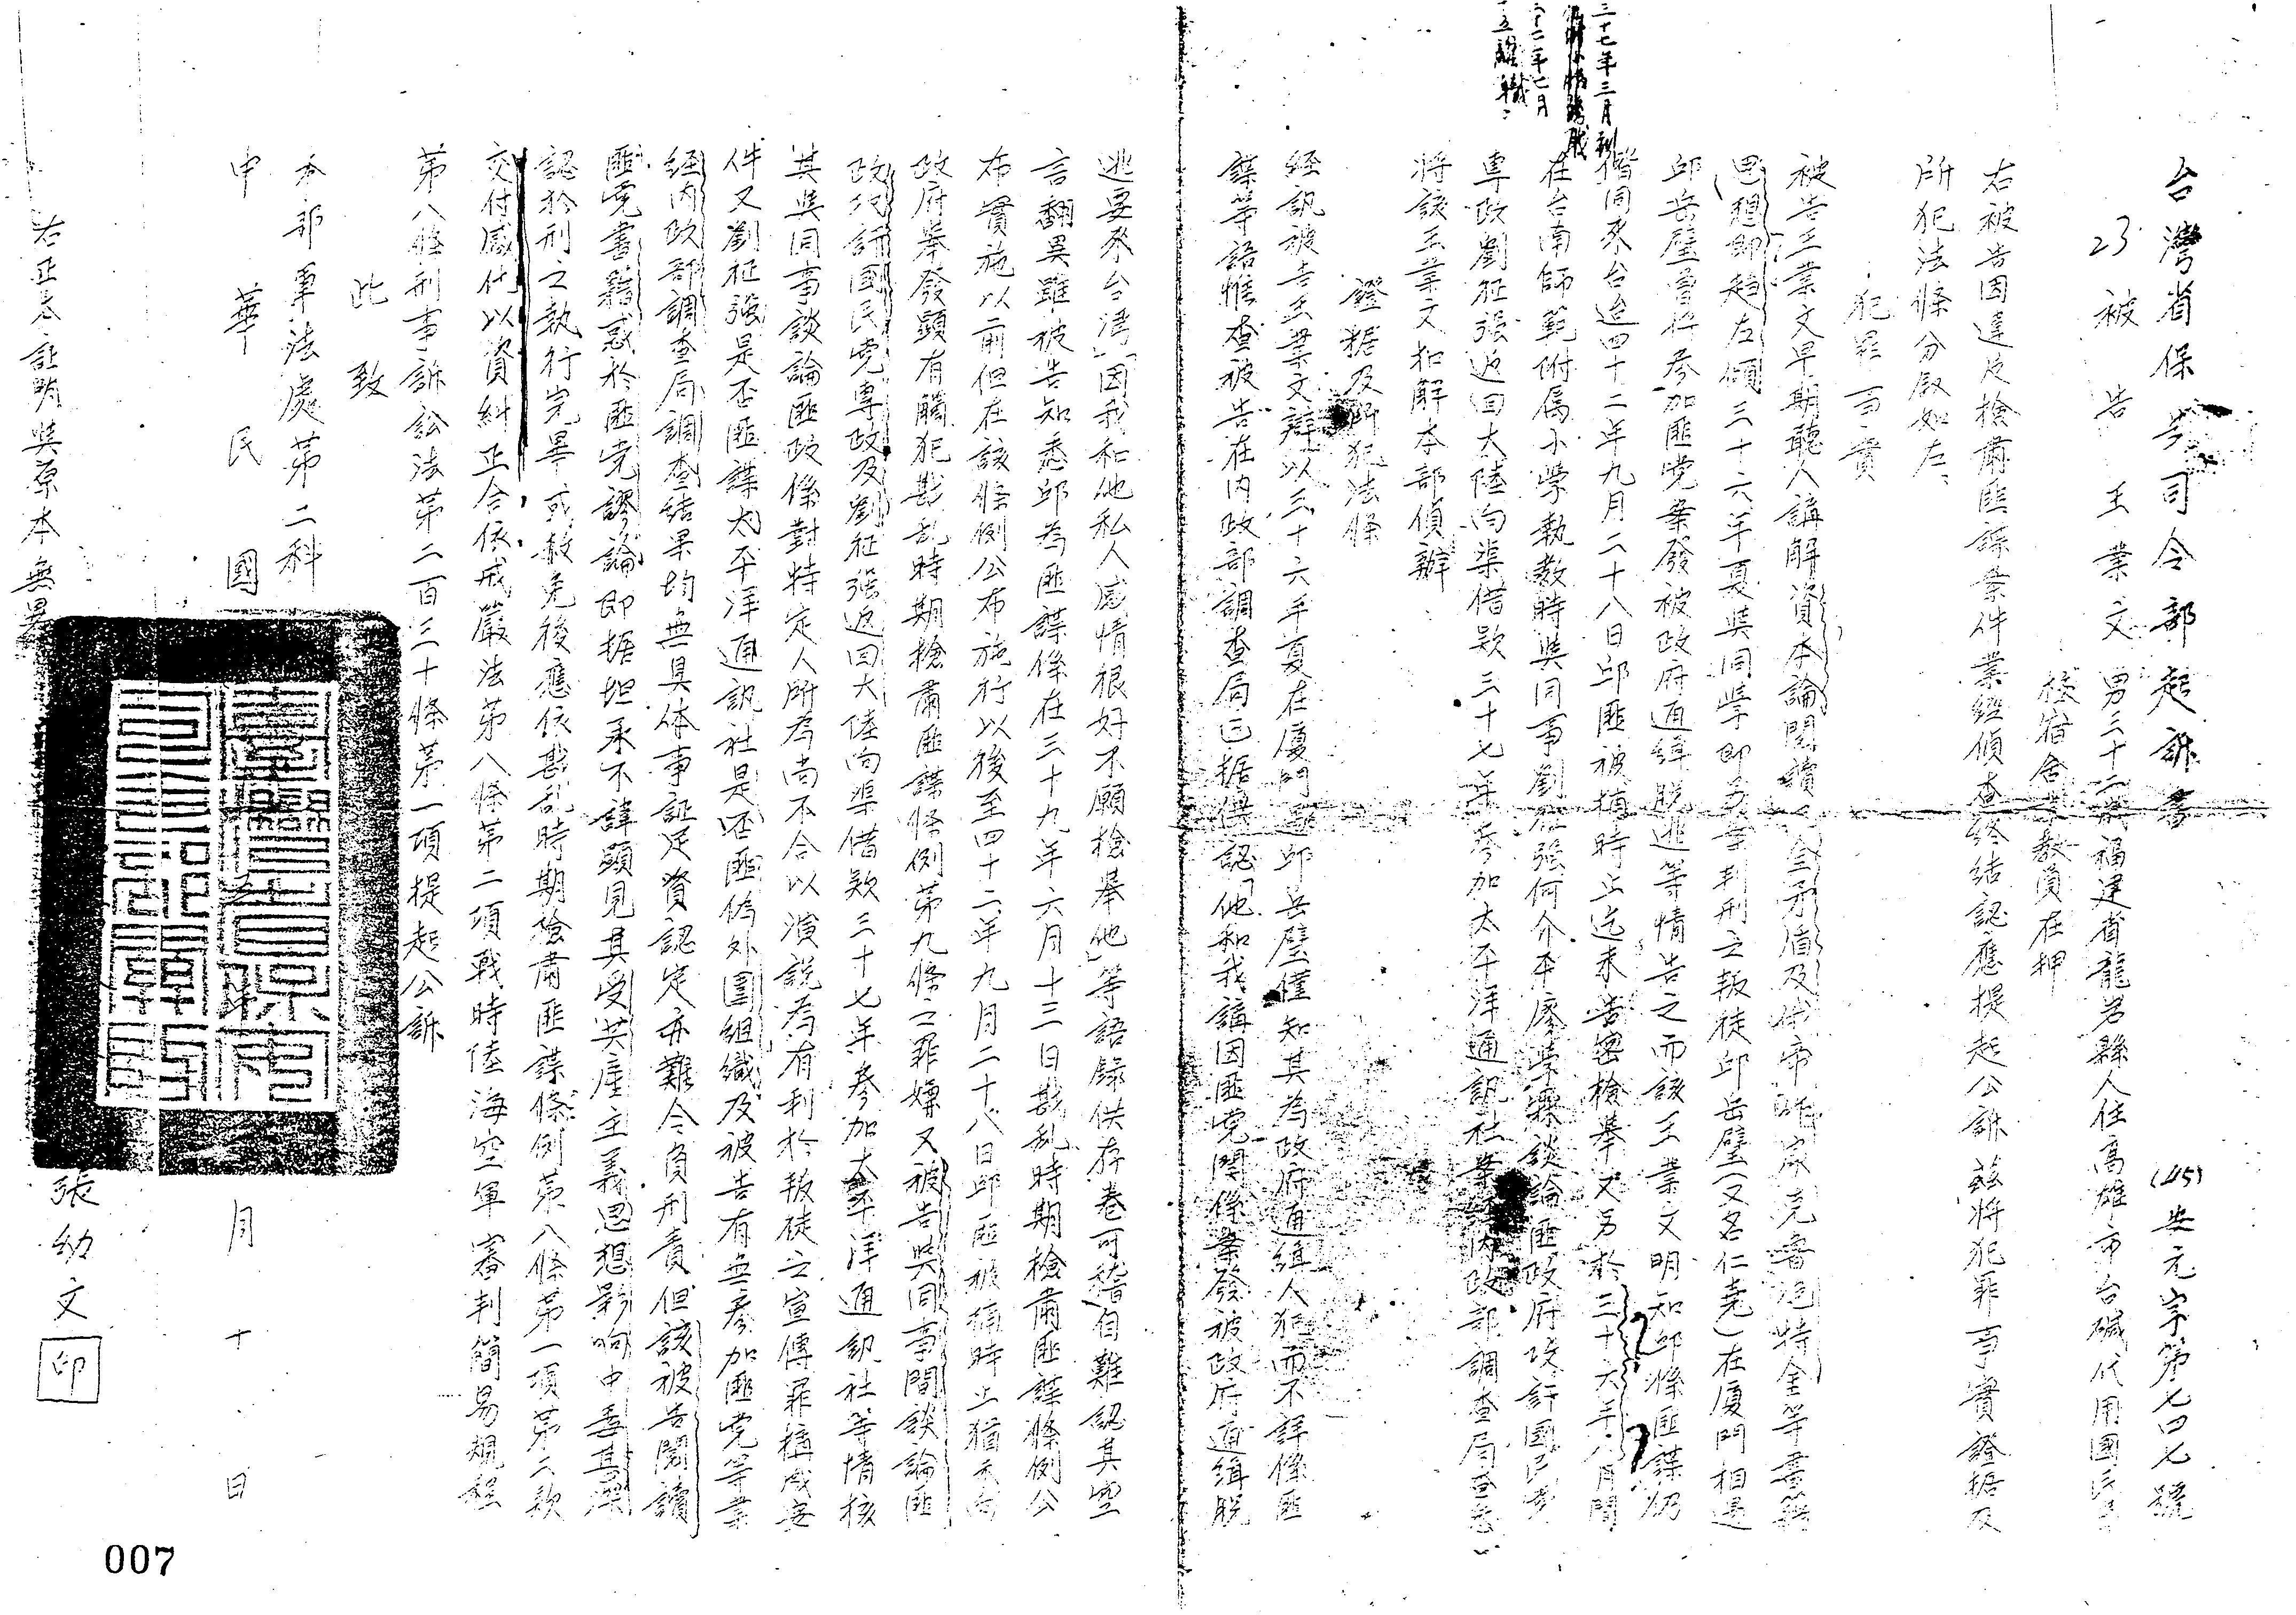 台灣省保安司令部起訴書
(45)安元字第七四七號
23 被告 王業文 男三十二歲福建省龍岩縣人住高雄市台碱代用國民學
校宿舍業教員在押
右被告因違反檢肅匪諜案件業經偵查終結認應提起公訴茲將犯罪事實證據及
所犯法條分敘如左、
犯罪事實
被告王業文早期聽人講解資本論閱讀 矛盾及 帝 等書籍
思想即趨左傾三十六年夏與同學即 判刑之叛徒邱岳璧(又名仁堯)在廈門相遇
邱岳璧曾將參加匪党案發被政府通緝脫逃等情告之而該王業文明知邱係匪諜仍
偕同來台迨四十二年九月二十八日邱匪被捕時止迄未告密檢舉又另於三十六年八月間
在台南師範附屬小學執教時與同事劉征強何介本廖學霖談論匪政府攻訐國民党
專政劉征強返回大陸向渠借款三十七年參加太平洋通訊社案經內政部調查局查悉
將該王業文扣解本部偵辦
證据及所犯法條
經訊被告王業文辯以三十六年夏在廈門遇邱岳璧僅知其為政府通緝人犯而不詳係匪
諜等語惟查被告在內政部調查局已据供認「他和我講因匪党関係案發被政府通緝脫
逃要來台灣」「因我和他私人感情很好不願檢舉他」等語錄供存卷可稽自難認其空
言翻異雖被告知悉邱為匪諜係在三十九年六月十三日戡乱時期檢肅匪諜條例公
布實施以前但在該條例公布施行以後至四十二年九月二十八日邱匪被捕時止猶未向
政府舉發顯有觸犯戡乱時期檢肅匪諜條例第九條之罪嫌又被告與同事間談論匪
政攻訐國民党專政及劉征强返回大陸向渠借款三十七年參加太平洋通訊社等情核
其與同事談論匪政係對特定人所為尚不合以演說為有利於叛徒之宣傳罪構成要
件又劉征强是否匪諜太平洋通訊社是否匪偽外圍組織及被告有無參加匪党等業
經內政部調查局調查結果均無具体事証足資認定亦難令負刑責但該被告閱讀
匪党書籍惑於匪党謬論即据坦承不諱顯見其受共產主義思想影响中毒甚深
認於刑之執行完畢或赦免後應依戡乱時期檢肅匪諜條例第八條第一項第二款
交付感化以資糾正合依戒嚴法第八條第二項戰時陸海空軍審判簡易規程
第八條刑事訴訟法第二百三十條第一項提起公訴
此致
本部軍法處第二科
中華民國 年 月十日
右正本証明與原本無異
張幼文 印
三十七年三月
十二年七月
007